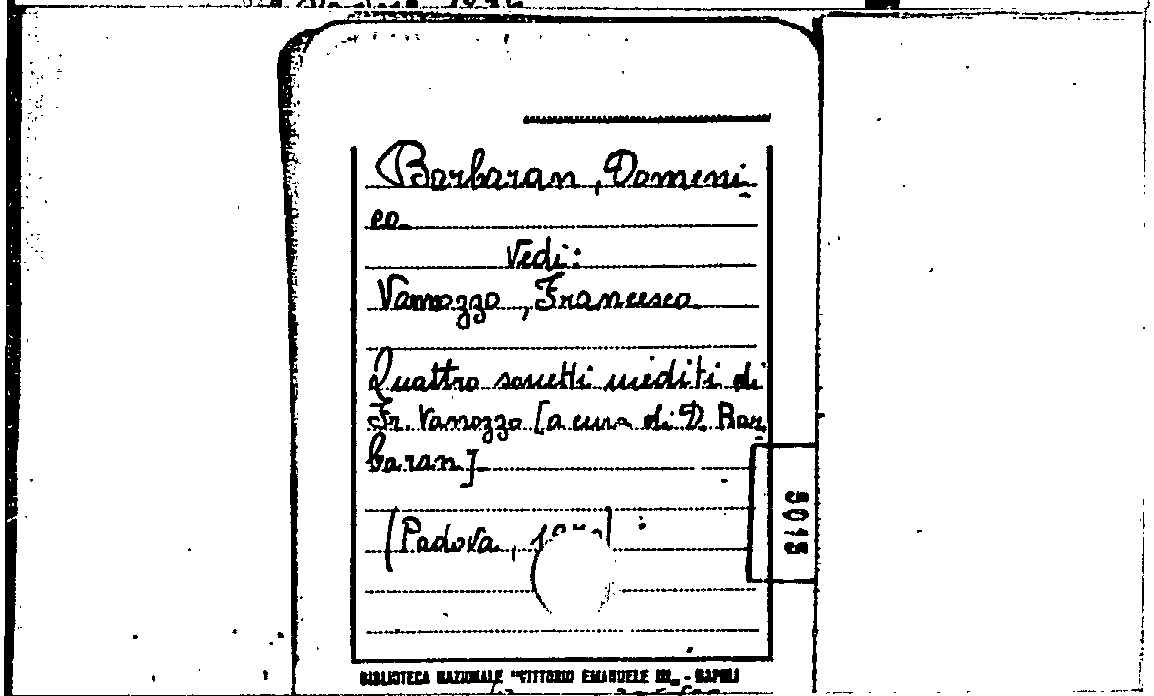 Barbaran, Domeni-
co.
Vedi:
Vannozzo, Francesco
Quattro sonetti inediti di
Fr. Vannozzo [a cura di D. Bar-
baran].
(Padova,
5015
BIBLIOTECA NAZIONALE "VITTORIO EMANUELE III" - NAPOLI